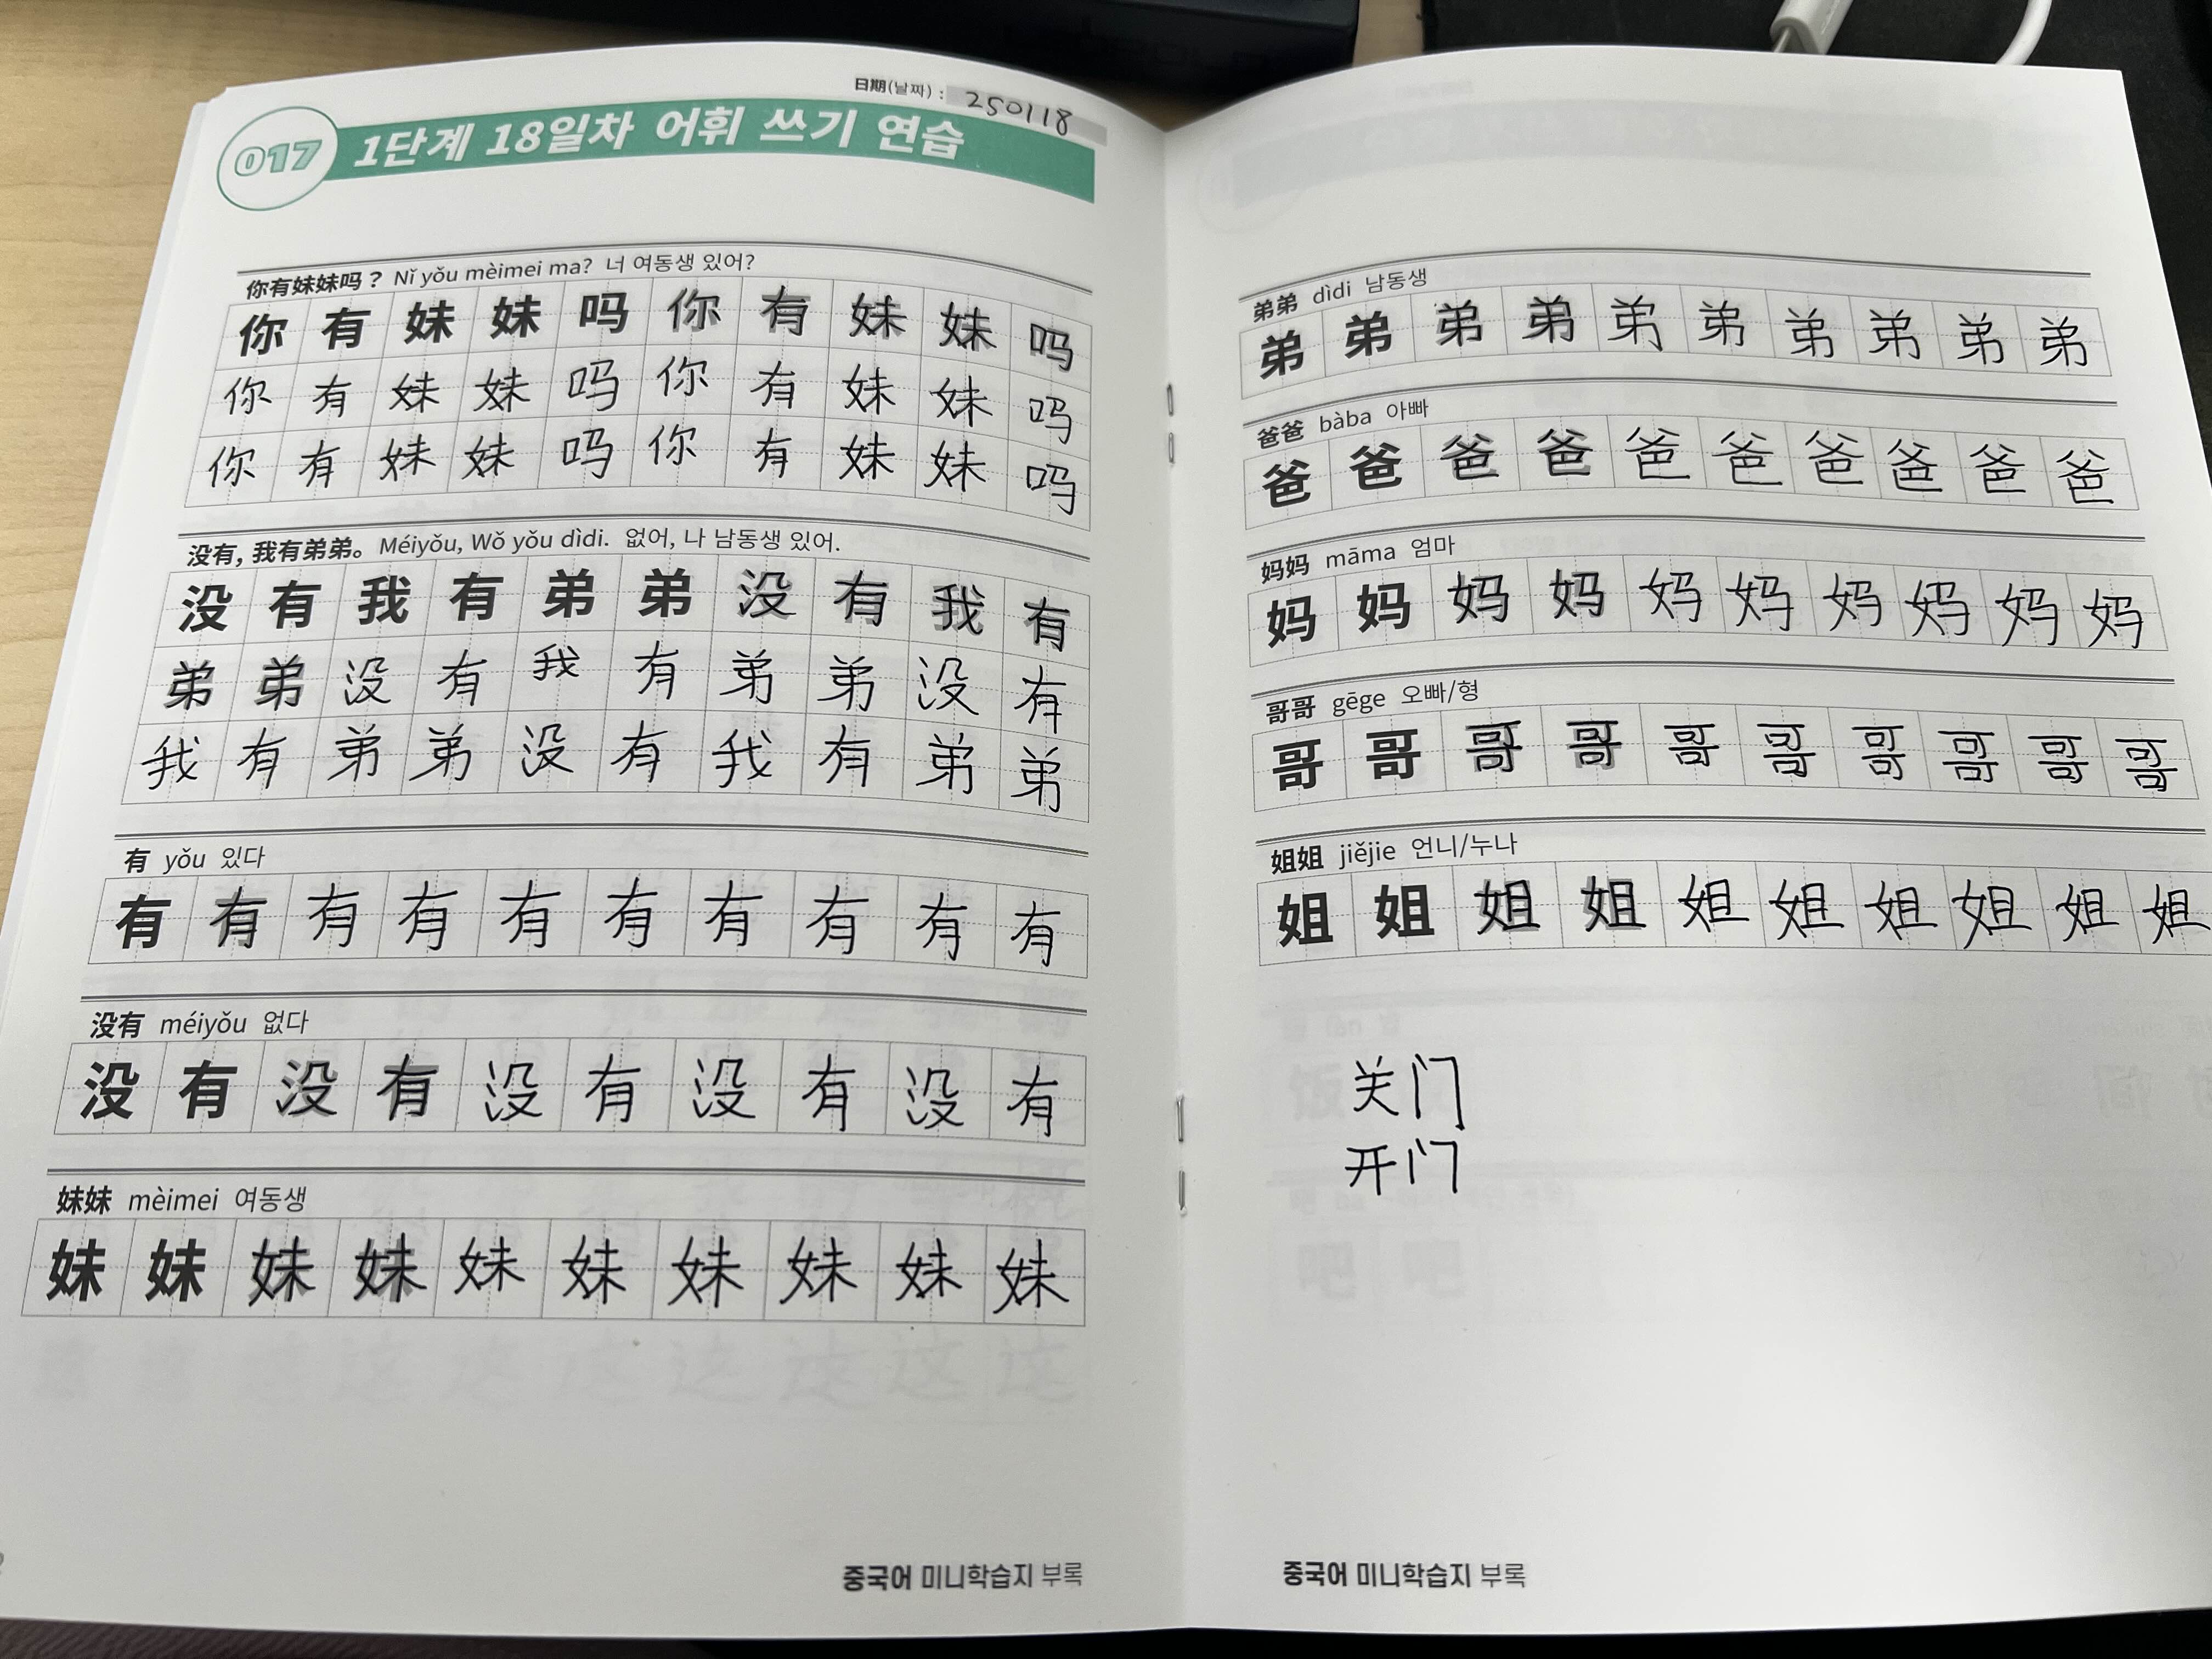 日期(날짜) : 250118
017 1단계 18일차 어휘 쓰기 연습
你有妹妹吗？ Nǐ yǒu mèimei ma? 너 여동생 있어?
你 有 妹 妹 吗 你 有 妹 妹 吗
你 有 妹 妹 吗 你 有 妹 妹 吗
你 有 妹 妹 吗 你 有 妹 妹 吗
没有, 我有弟弟。 Méiyǒu, Wǒ yǒu dìdi. 없어, 나 남동생 있어.
没 有 我 有 弟 弟 没 有 我 有
弟 弟 没 有 我 有 弟 弟 没 有
我 有 弟 弟 没 有 我 有 弟 弟
有 yǒu 있다
有 有 有 有 有 有 有 有 有 有
没有 méiyǒu 없다
没 有 没 有 没 有 没 有 没 有
妹妹 mèimei 여동생
妹 妹 妹 妹 妹 妹 妹 妹 妹 妹
중국어 미니학습지 부록
弟弟 dìdi 남동생
弟 弟 弟 弟 弟 弟 弟 弟 弟 弟
爸爸 bàba 아빠
爸 爸 爸 爸 爸 爸 爸 爸 爸 爸
妈妈 māma 엄마
妈 妈 妈 妈 妈 妈 妈 妈 妈 妈
哥哥 gēge 오빠/형
哥 哥 哥 哥 哥 哥 哥 哥 哥 哥
姐姐 jiějie 언니/누나
姐 姐 姐 姐 姐 姐 姐 姐 姐 姐
关门
开门
중국어 미니학습지 부록